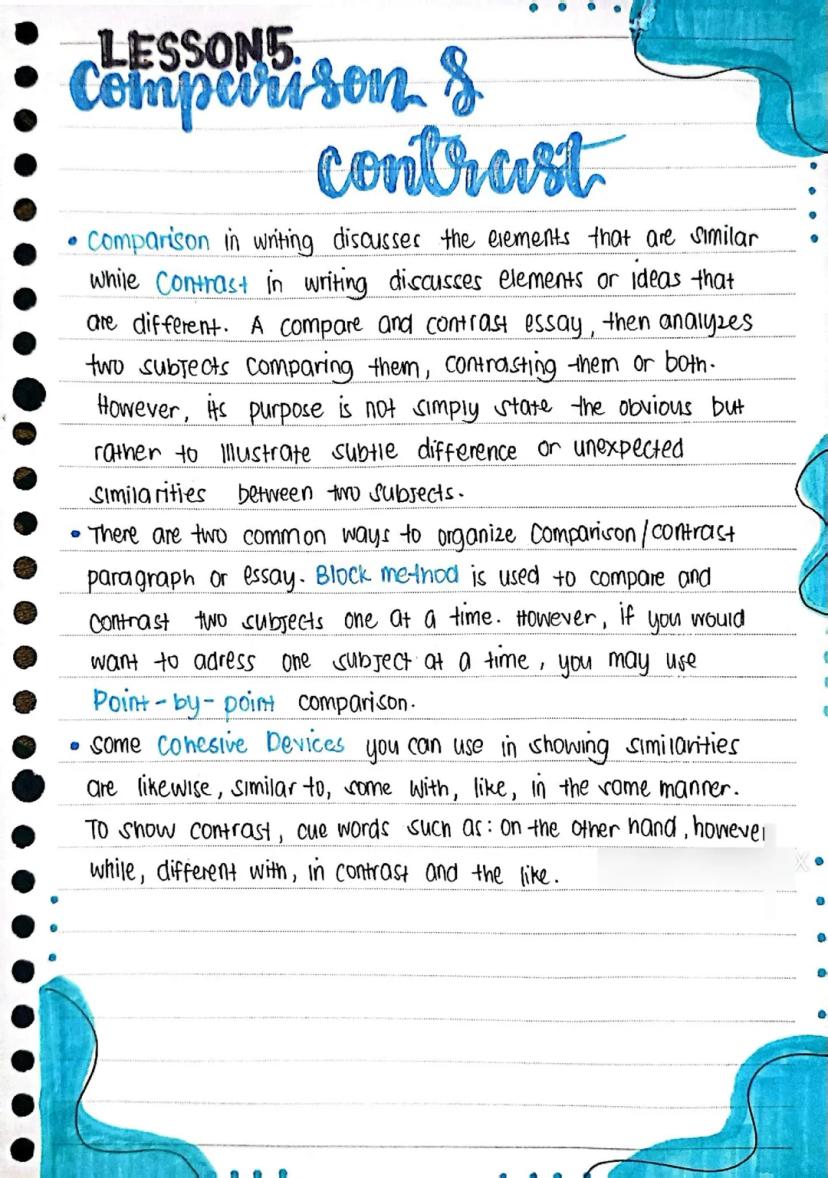 LESSON 5.
Comparison &
contrast
• Comparison in writing discusses the elements that are similar
while Contrast in writing discusses elements or ideas that
are different. A compare and contrast essay, then analyzes
two subjects comparing them, contrasting them or both.
However, its purpose is not simply state the obvious but
rather to illustrate subtle difference or unexpected
similarities between two subjects.
• There are two common ways to organize Comparison/contrast
paragraph or essay. Block method is used to compare and
contrast two subjects one at a time. However, if you would
want to adress one subject at a time, you may use
Point-by-point comparison.
• some Cohesive Devices you can use in showing similarities
are likewise, similar to, some with, like, in the same manner.
To show contrast, cue words such as: on the other hand, however
while, different with, in contrast and the like.